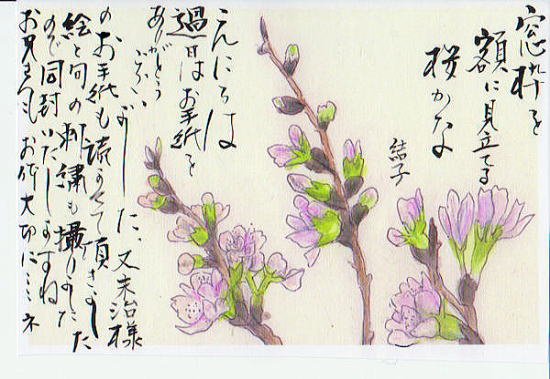 窓枠を
額に見立てる
桜かな
結子
こんにちは
過日はお手紙を
ありがとう
ございました、又末治様
のお手紙も読ませて頂きました
絵と句の刺繍も撮りました
ので同封いたしますね
お母さんも お体大切に…ネ